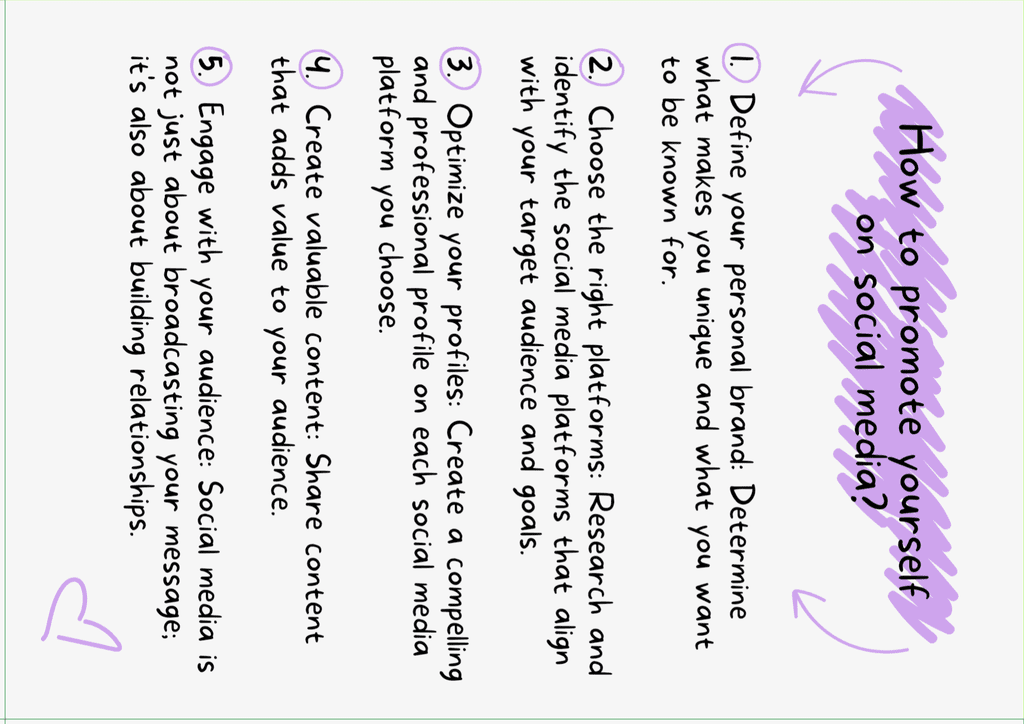 How to promote yourself
on social media?
1. Define your personal brand: Determine
what makes you unique and what you want
to be known for.
2. Choose the right platforms: Research and
identify the social media platforms that align
with your target audience and goals.
3. Optimize your profiles: Create a compelling
and professional profile on each social media
platform you choose.
4. Create valuable content: Share content
that adds value to your audience.
5. Engage with your audience: Social media is
not just about broadcasting your message;
it's also about building relationships.